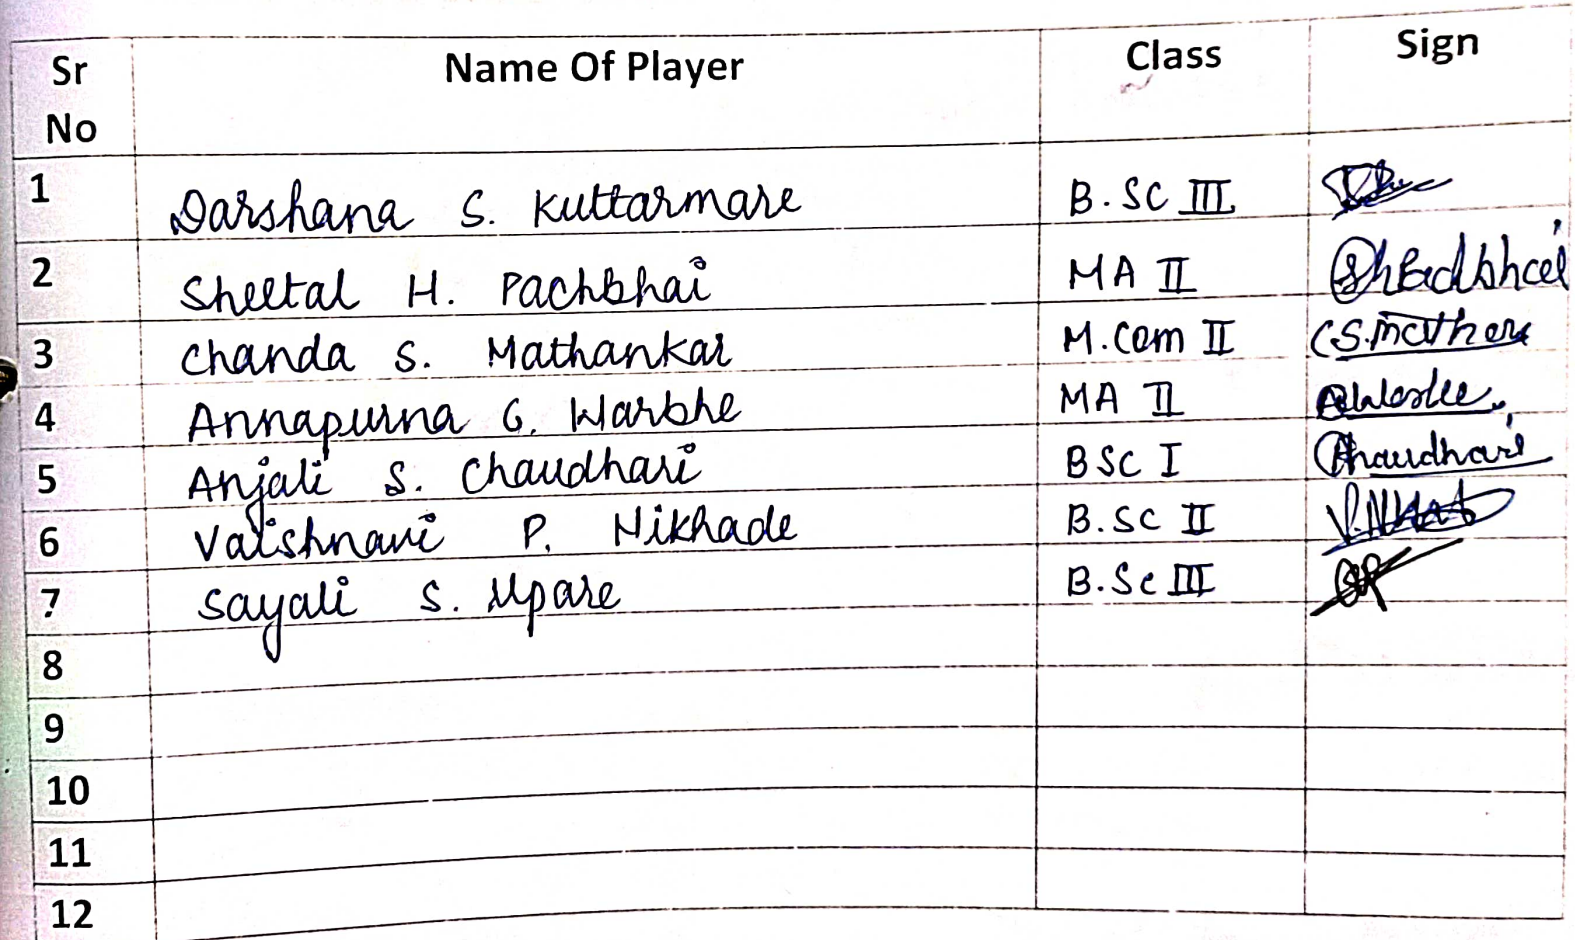 Sr No Name Of Player Class Sign
1 Darshana S. Kuttarmare B.SC III
2 Sheetal H. Pachbhai MA II
3 Chanda S. Mathankar M.Com II
4 Annapurna G. Warbhe MA II
5 Anjali S. Chaudhari BSC I Chaudhari
6 Vaishnavi P. Nikhade B.SC II
7 Sayali S. Upare B.Sc III
8
9
10
11
12